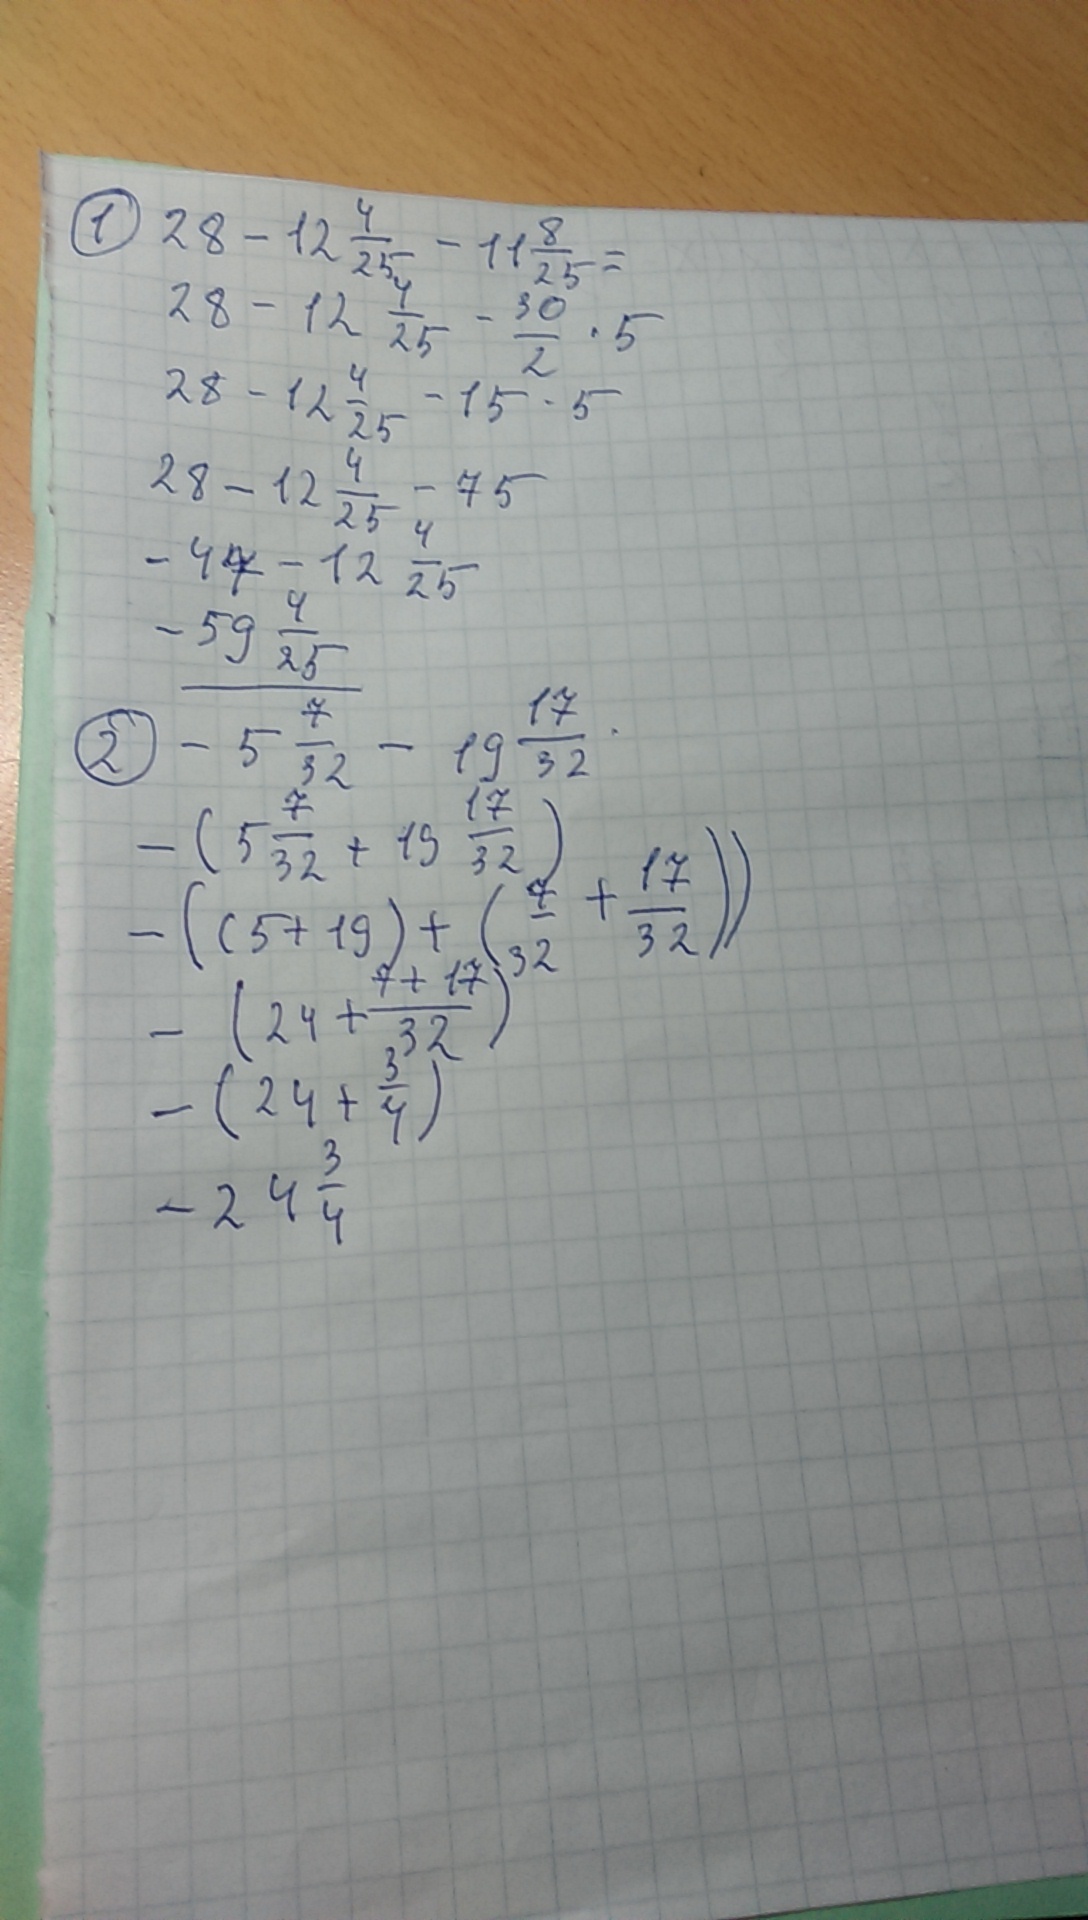 ① 28 - 12 4/25 - 11 8/25 =
28 - 12 4/25 - 30/2 · 5
28 - 12 4/25 - 15 · 5
28 - 12 4/25 - 75
- 47 - 12 4/25
- 59 4/25
② - 5 7/32 - 19 17/32 .
- (5 7/32 + 19 17/32)
- ((5 + 19) + (7/32 + 17/32))
- (24 + 7 + 17/32)
- (24 + 3/4)
- 24 3/4